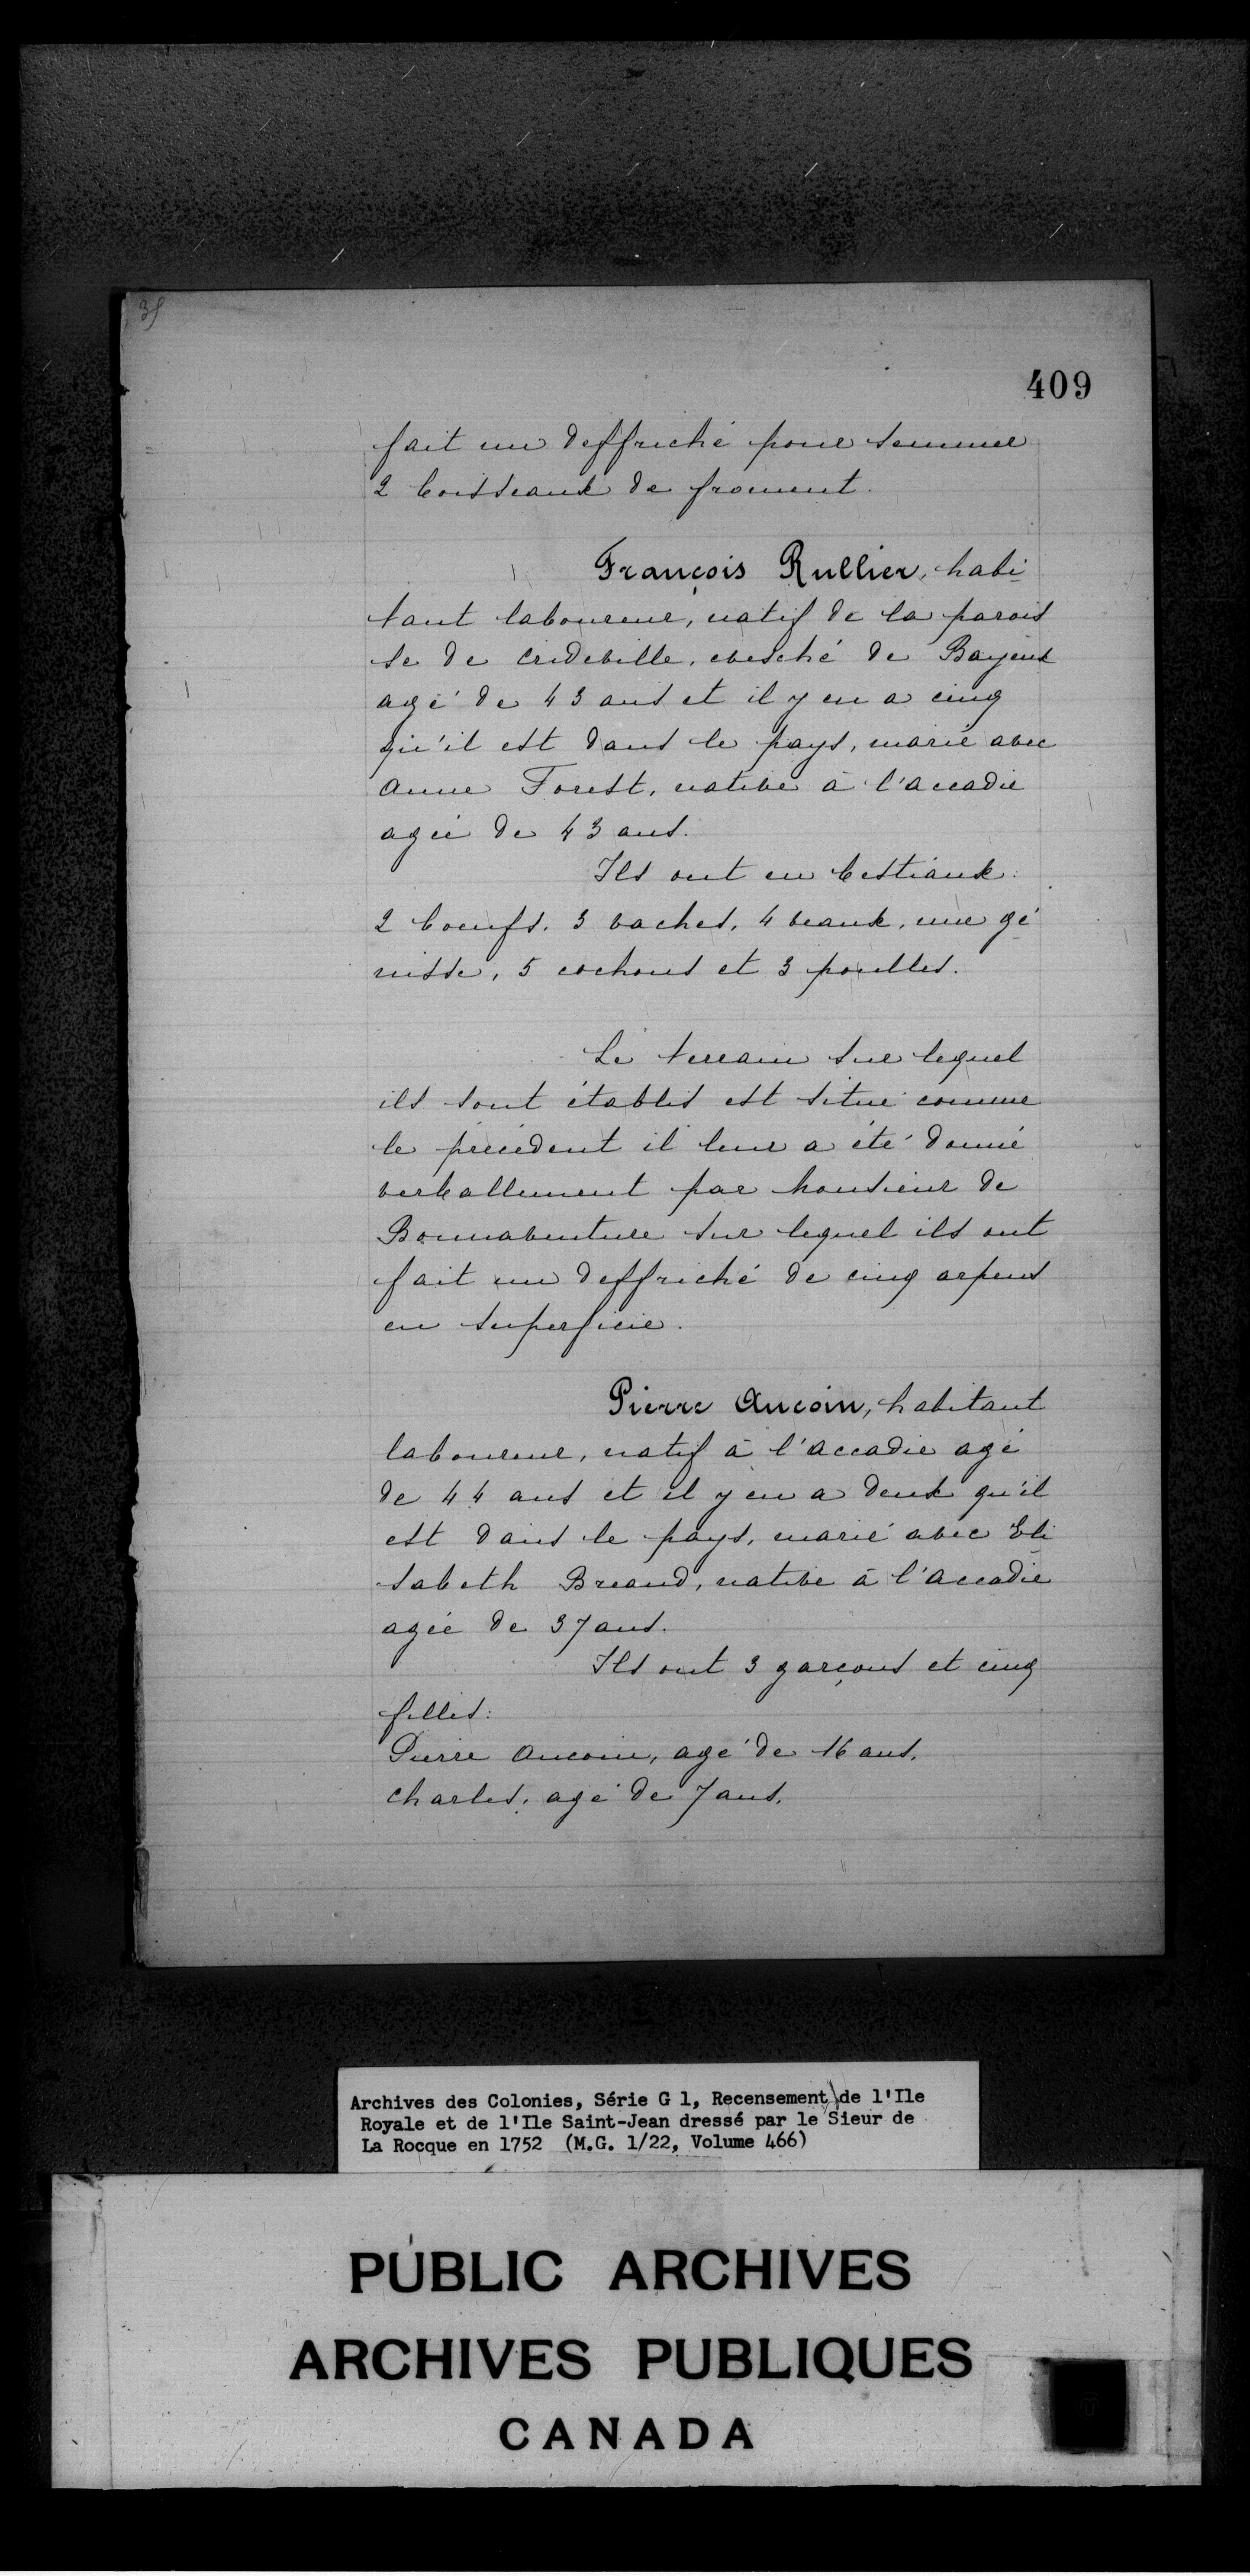 409
fait un deffriché pour semmer
2 boisseaux de froment.
François Rullier, habi
tant laboureur, natif de la parois
se de crideville, evesché de Bayeux
agé de 43 ans et il y en a cinq
qu'il est dans le pays, marié avec
anne Forest, native à l'accadie
agée de 43 ans.
Ils ont en bestiaux:
2 boeufs, 3 vaches, 4 veaux, une gé
nisse, 5 cochons et 3 poulles.
Le terrain sur lequel
ils sont établis est situé comme
le précédent il leur a été donné
verballement par Monsieur de
Bonnaventure sur lequel ils ont
fait un deffriché de cinq arpens
en superficie.
Pierre Aucoin, habitant
laboureur, natif à l'accadie agé
de 44 ans et il y en a deux qu'il
est dans le pays, marié avec Eli
sabeth Breaud, native à l'accadie
agée de 37 ans.
Ils ont 3 garçons et cinq
filles:
Pierre Aucoin, agé de 16 ans.
charles, agé de 7 ans.
Archives des Colonies, Série G 1, Recensement de l'Ile
Royale et de l'Ile Saint-Jean dressé par le Sieur de
La Rocque en 1752 (M.G. 1/22, Volume 466)
PUBLIC ARCHIVES
ARCHIVES PUBLIQUES
CANADA